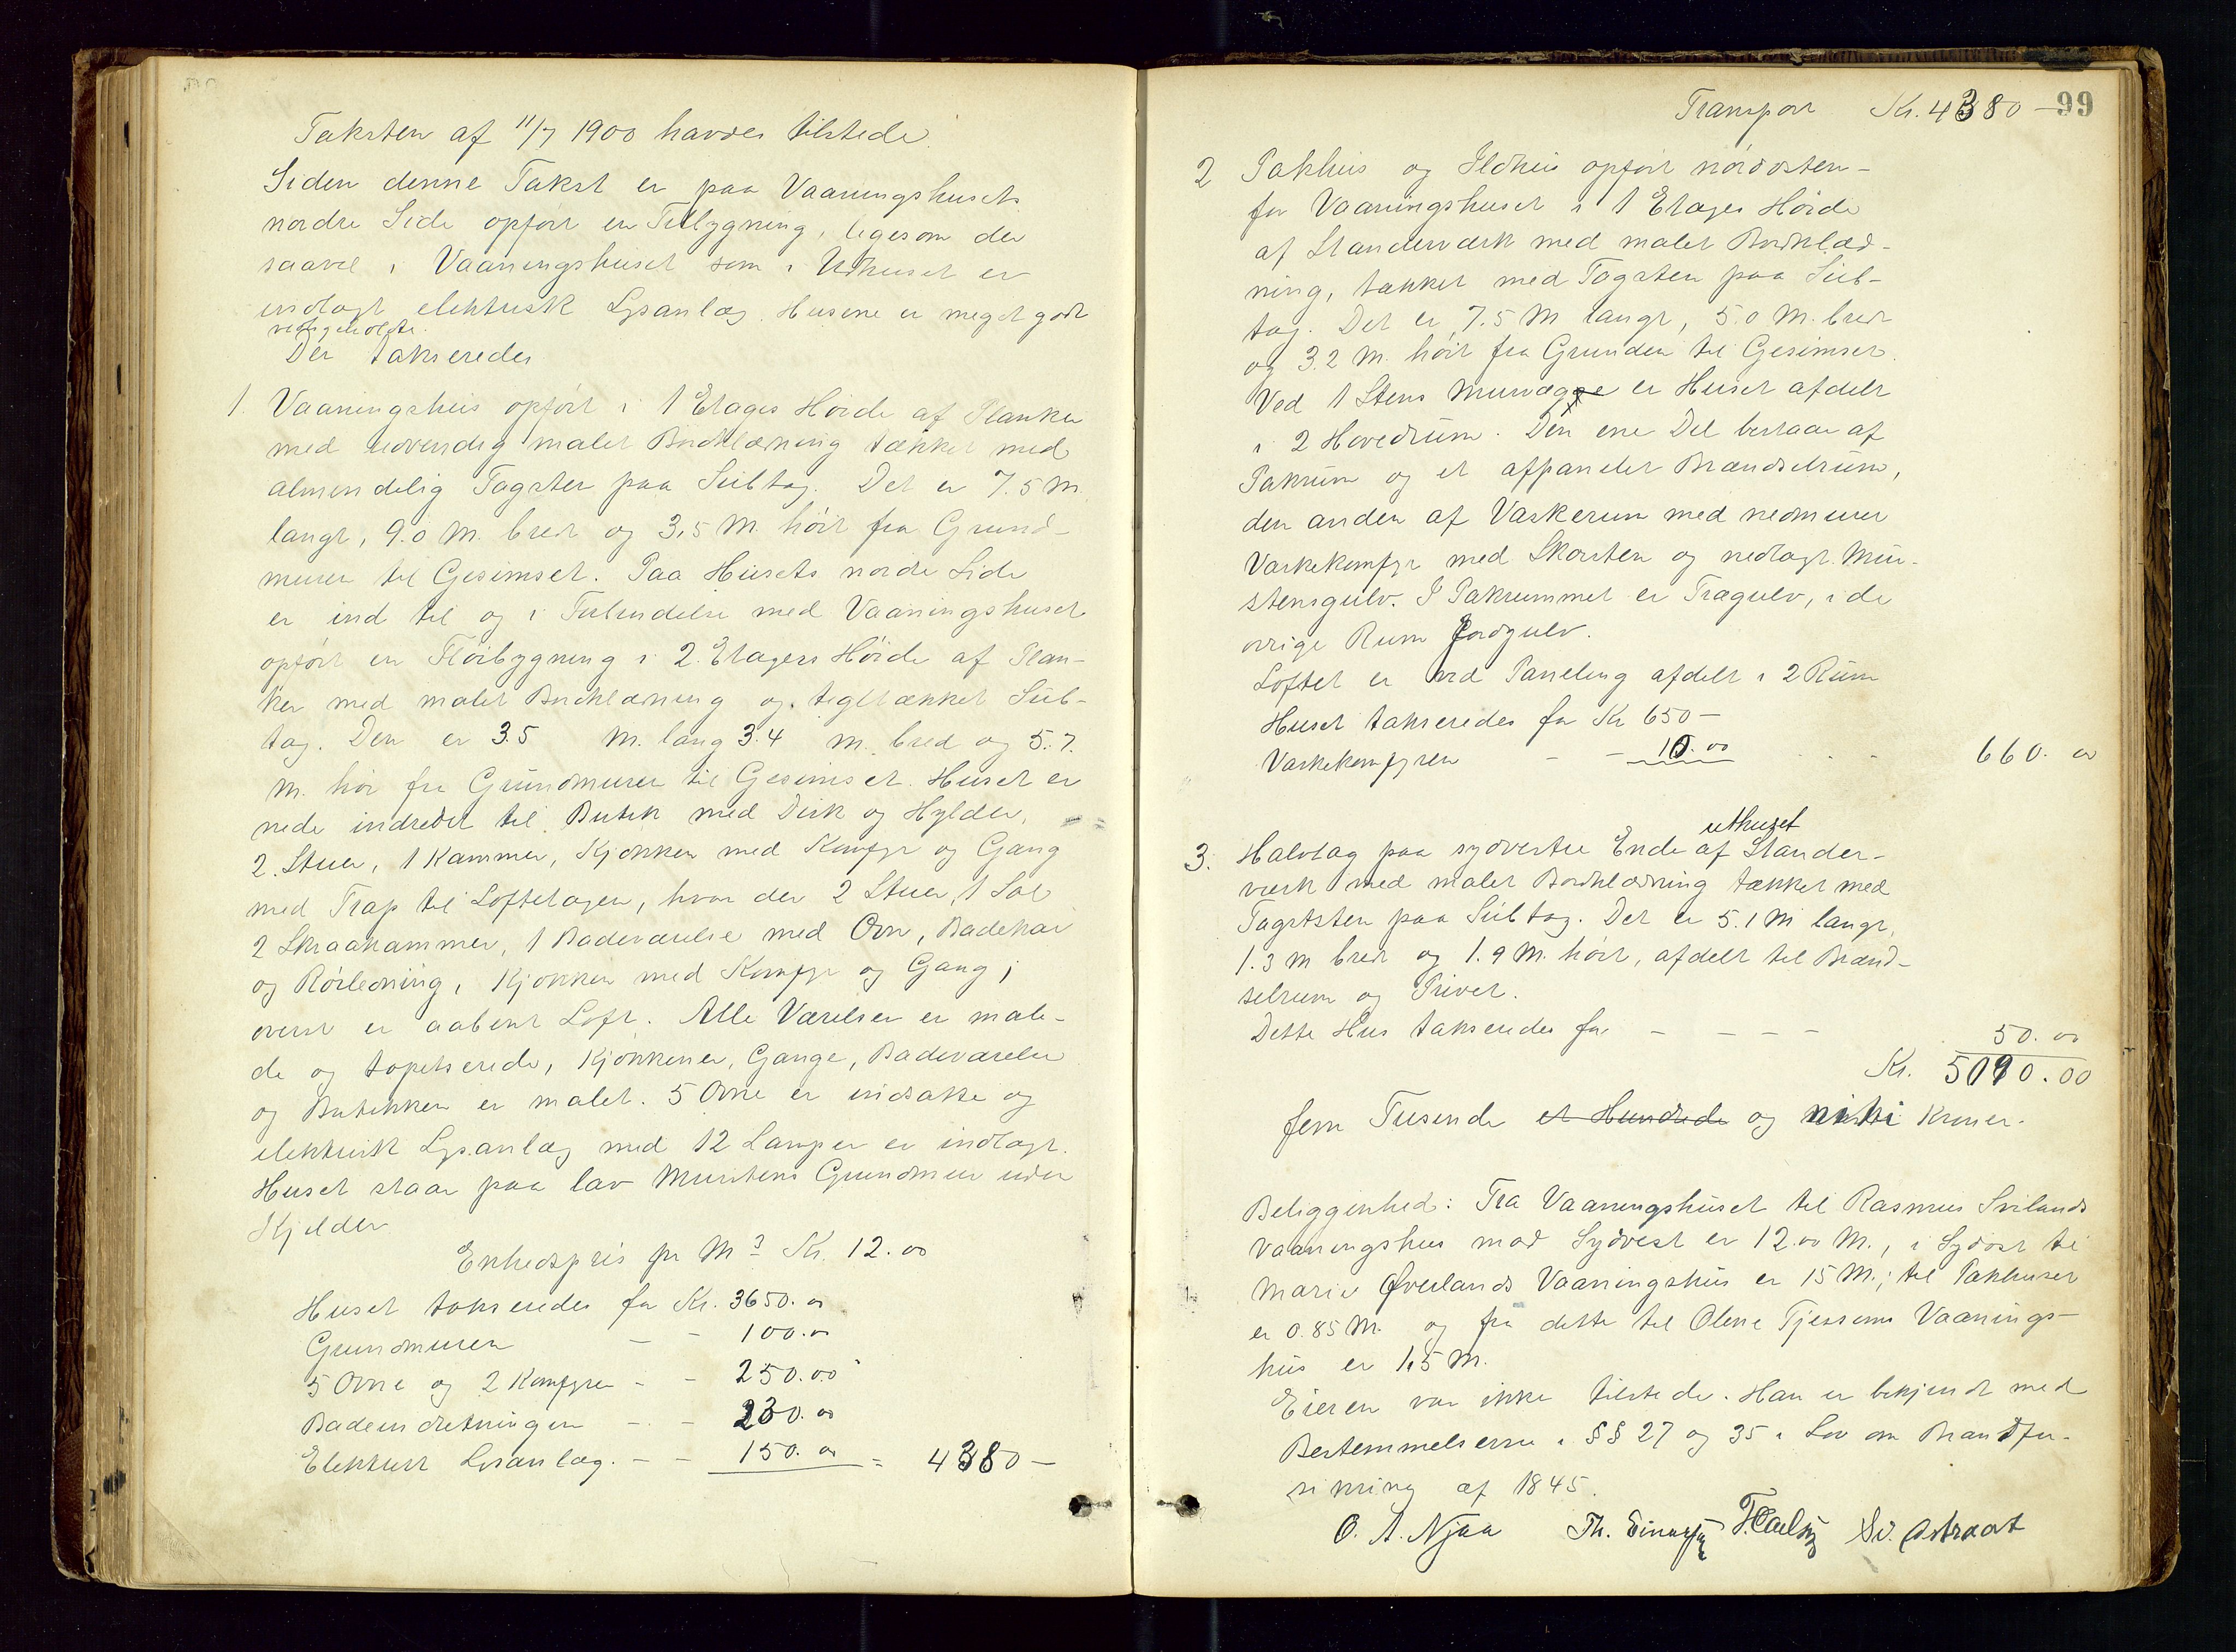 Taksten af 11/7 1900 havdes tilstede.
Siden denne Takst er paa Vaaningshusets
nordre Side opført en Tilbygning, ligesom der
saavel i Vaaningshuset som i Udhuset er
indlagt elektrisk Lysanlæg. Husene er meget godt
vedligeholdte.
Der takseredes
1. Vaaningshus opført i 1 Etages Høide af Planker
med udvendig malet Bordklædning tækket med
almendelig Tagsten paa Subtag. Det er 7.5 M.
langt, 9.0 M. bredt og 3,5 M. høit fra Grund-
muren til Gesimset. Paa Husets nordre Side
er ind til og i Forbindelse med Vaaningshuset
opført en Fløibygning i 2 Etagers Høide af Plan-
ker med malet Bordklædning og tegltækket Sub-
tag. Den er 3.5 M. lang 3.4 M. bred og 5.7.
M. høi fra Grundmuren til Gesimset. Huset er
nede indredet til Butik med Disk og Hylder,
2 Stuer, 1 Kammer, Kjøkken med Komfyr og Gang
med Trap til Loftetagen, hvor der 2 Stuer, 1 Sal
2 Skraakammer, 1 Badeværelse med Ovn, Badekar
og Rørledning, Kjøkken med Komfyr og Gang;
øverst er aabent Loft. Alle Værelser er male-
de og tapetserede, Kjøkkener, Gange, Badeværelse
og Butikken er malet. 5 Ovne er indsatte og
elektrisk Lysanlæg med 12 Lamper er indlagt.
Huset staar paa lav Murstens Grundmur uden
Kjelder
Enhedspris pr M3 Kr. 12.00
Huset takseredes for Kr. 3650.00
Grundmuren - - 100.00
5 Ovne og 2 Komfyrer - - 250.00
Badeindretningen - - 230.00
Elektrisk Lysanlæg. - - 150.00 = 4380 -
Transport Kr. 4380 - 99
2 Pakhus og Ildhus opført nordøsten-
for Vaaningshuset i 1 Etages Høide
af Standerværk med malet Bordklæd-
ning, tækket med Tagsten paa Sub-
tag. Det er 7.5 M langt, 5.0 M. bredt
og 3.2 M. høit fra Grunden til Gesimset.
Ved 1 Stens Murvæg er Huset afdelt
i 2 Hovedrum. Den ene Del bestaar af
Pakrum og et afpanelet Brændselrum,
den anden af Vaskerum med nedmuret
Vaskekomfyr med Skorsten og nedlagt Mur-
stensgulv. I Pakrummet er Trægulv, i de
øvrige Rum Jordgulv.
Loftet er ved Paneling afdelt i 2 Rum
Huset takseredes for Kr 650 -
Vaskekomfyren - - 10.00 - - 660.00
uthuset
3. Halvtag paa sydvestre Ende af Stander-
værk med malet Bordklædning tækket med
Tagsten paa Subtag. Det er 5.1 M langt,
1.3 m bredt og 1.9 M. høit, afdelt til Brænd-
selrum og Privet.
Dette Hus takseredes for - - - - 50.00
Kr. 5090.00
fem Tusinde et Hundrede og nitti Kroner.
Beliggenhed: Fra Vaaningshuset til Rasmus Svilands
Vaaningshus mod Sydvest er 12.00 M., i Sydost til
Marie Øverlands Vaaningshus er 15 M.; til Pakhuset
er 0.85 M. og fra dette til Olene Tjessems Vaanings-
hus er 1,5 M.
Eieren var ikke tilstede. Han er bekjendt med
Bestemmelserne i §§ 27 og 35 i Lov om Brandfor-
sikring af 1845.
O. A. Njaa Th. Einarsen Sv. Astraat